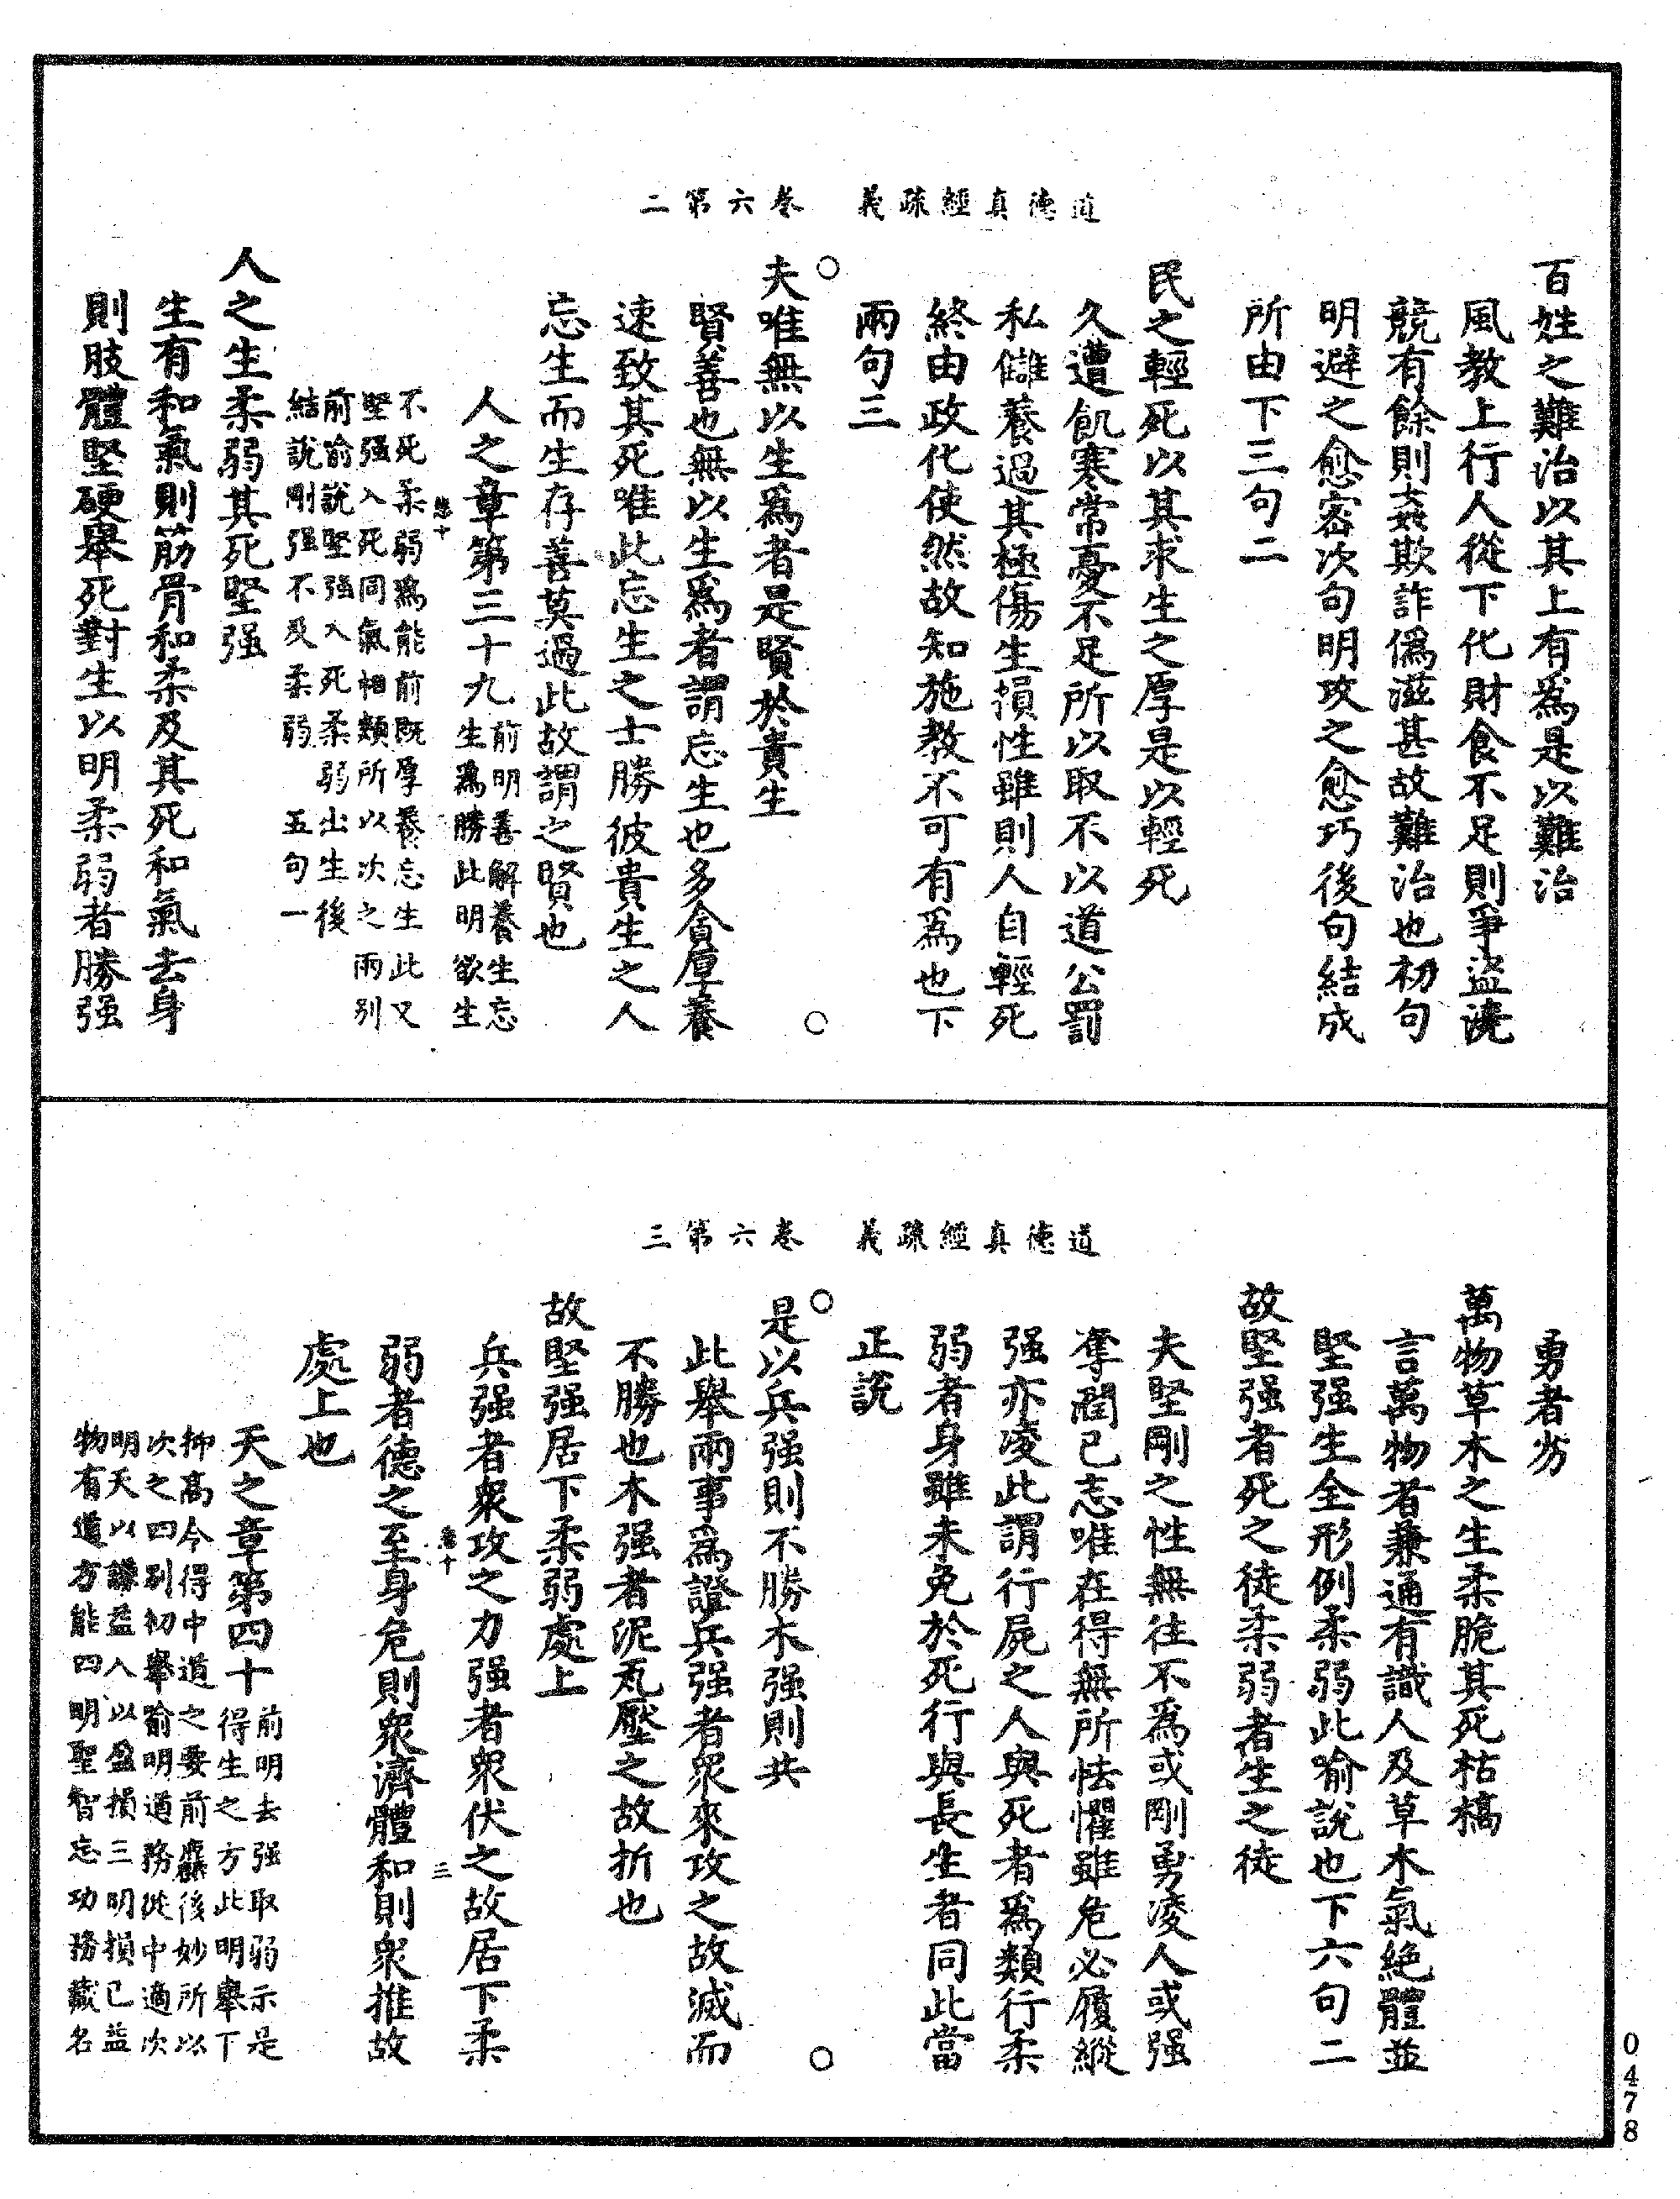 道德真經疏義　卷六第二
百姓之難治以其上有爲是以難治
風教上行人從下化財食不足則爭盜澆
競有餘則姦欺詐僞滋甚故難治也初句
明避之愈密次句明攻之愈巧後句結成
所由下三句二
民之輕死以其求生之厚是以輕死
久遭飢寒常憂不足所以取不以道公罰
私讎養過其極傷生損性雖則人自輕死
終由政化使然故知施教不可有爲也下
兩句三
夫唯無以生爲者是賢於貴生
賢善也無以生爲者謂忘生也多貪厚養
速致其死唯此忘生之士勝彼貴生之人
忘生而生存善莫過此故謂之賢也
人之章第三十九
前明善解養生忘
生爲勝此明欲生
不死柔弱爲能前既厚養忘生此又
堅强入死同氣相類所以次之兩別
前喻說堅强入死柔弱出生後
結說剛强不及柔弱　五句一
人之生柔弱其死堅强
生有和氣則筋骨和柔及其死和氣去身
則肢體堅硬舉死對生以明柔弱者勝强
道德真經疏義　卷六第三
勇者劣
萬物草木之生柔脆其死枯槁
言萬物者兼通有識人及草木氣絶體並
堅强生全形例柔弱此喻說也下六句二
故堅强者死之徒柔弱者生之徒
夫堅剛之性無往不爲或剛勇凌人或强
奪潤已志唯在得無所怯懼雖危必履縱
强亦凌此謂行屍之人與死者爲類行柔
弱者身雖未免於死行與長生者同此當
正說
是以兵强則不勝木强則共
此舉兩事爲證兵强者衆來攻之故滅而
不勝也木强者泥瓦壓之故折也
故堅强居下柔弱處上
兵强者衆攻之力强者衆伏之故居下柔
弱者德之至身危則衆濟體和則衆推故
處上也
天之章第四十
前明去强取弱示是
得生之方此明舉下
抑高今得中道之要前麤後妙所以
次之四別初舉喻明道務從中適次
明天以謙益人以盈損三明損已益
物有道方能四明聖智忘功務藏名
0478